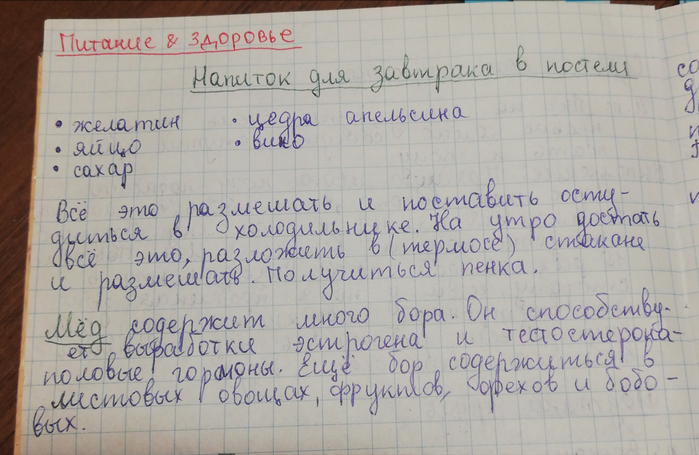 Питание & здоровье
Напиток для завтрака в постели
• желатин • цедра апельсина
• яйцо • вино
• сахар
Всё это размешать и поставить осту-
диться в холодильнике. На утро достать
всё это, разложить в (термосе) стакане
и размешать. Получиться пенка.
Мёд содержит много бора. Он способству-
ет выработки эстрогена и тестостерона-
половые гормоны. Ещё бор содержиться в
листовых овощах, фруктов, орехов и бобо-
вых.
со